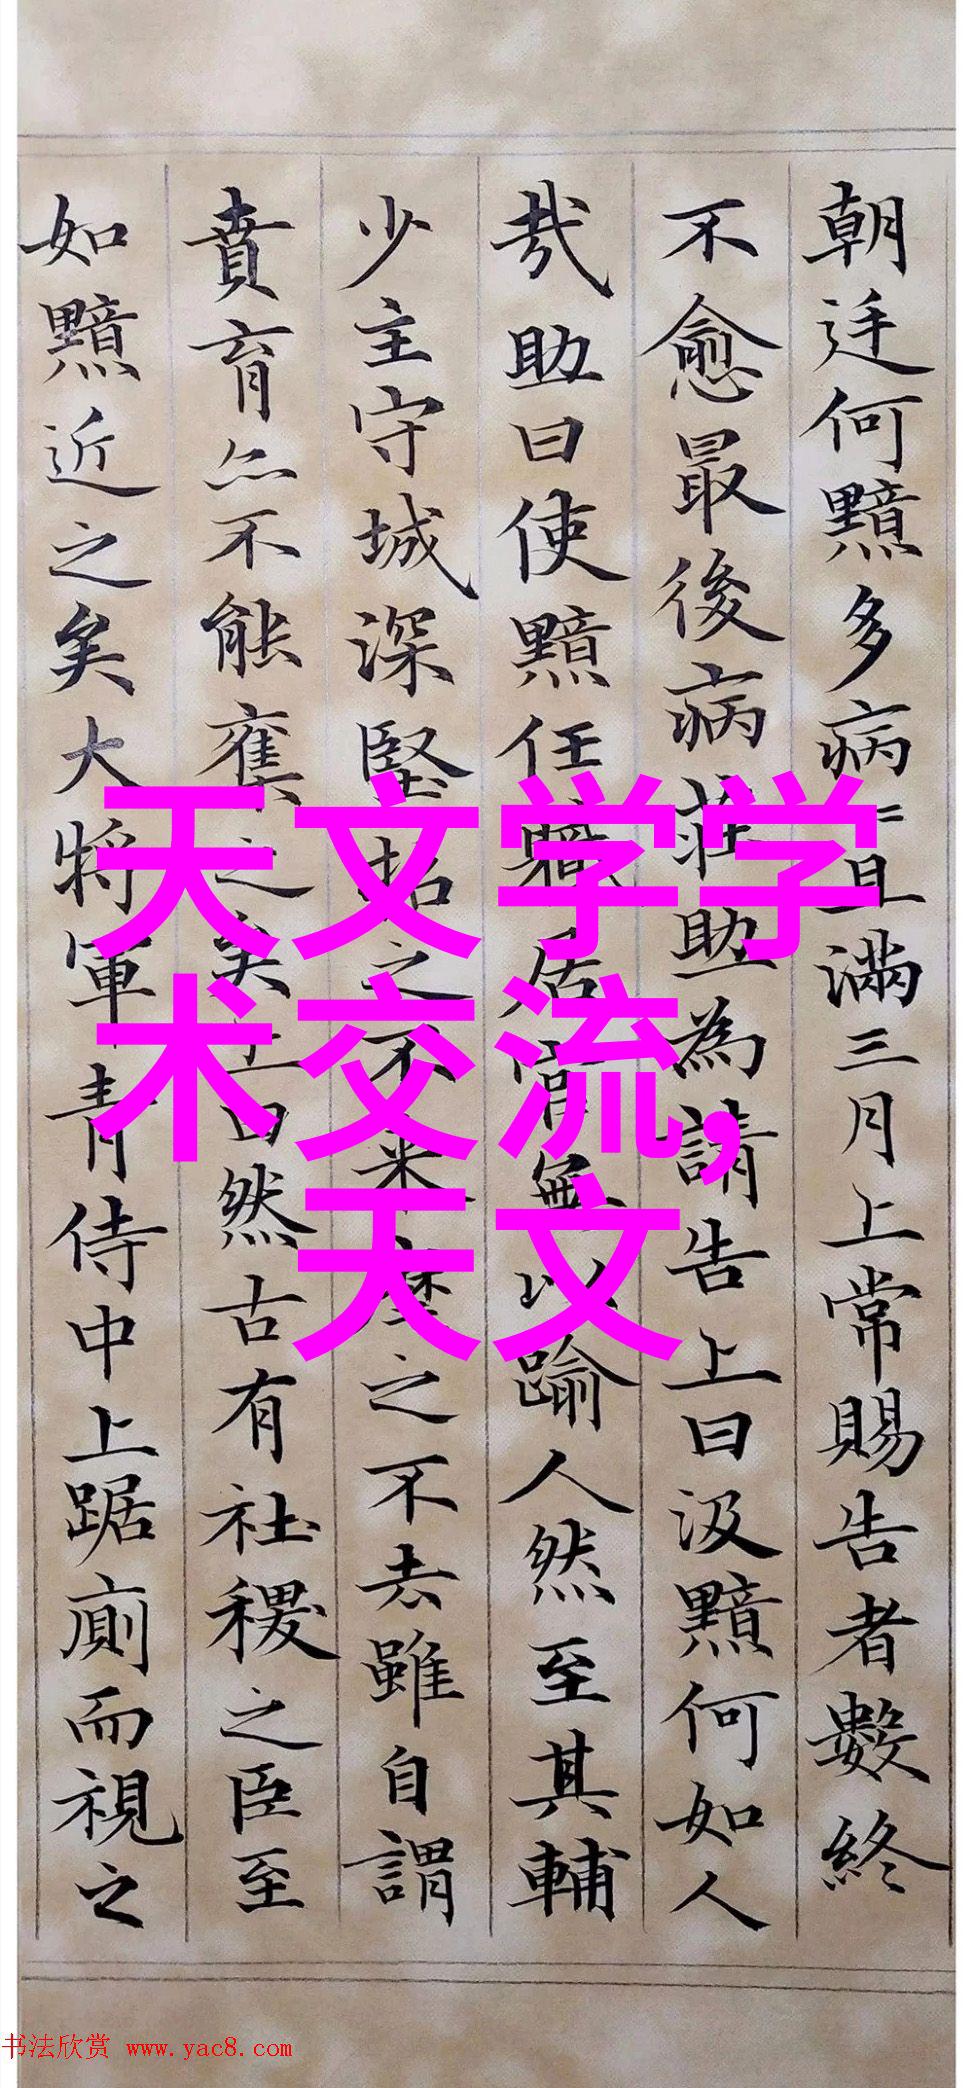 朝廷何黯多病〻且滿三月上常賜告者數終
不愈最後病莊助為請告上曰汲黯何如人
哉助曰使黯任職居官無以踰人然至其輔
少主守城深堅招之不來麾之不去雖自謂
賁育亦不能奪之矣上曰然古有社稷之臣至
如黯近之矣大將軍青侍中上踞廁而視之
天文学学
术交流,
天文
书法欣赏 www.yac8.com